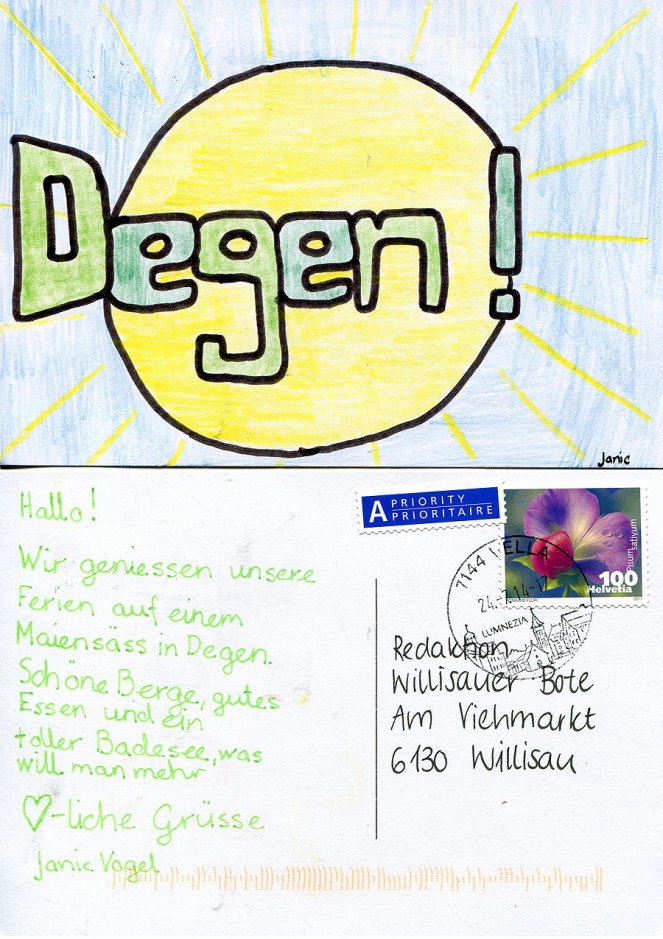 Degen!
Janic
Hallo!
Wir geniessen unsere
Ferien auf einem
Maiensäss in Degen.
Schöne Berge, gutes
Essen und ein
toller Badesee, was
will man mehr
♡-liche Grüsse
Janic Vogel
A PRIORITY
PRIORITAIRE
Pisum sativum
100
Helvetia
2011
VELLA
24.7.14-17
LUMNEZIA
Redaktion
Willisauer Bote
Am Viehmarkt
6130 Willisau